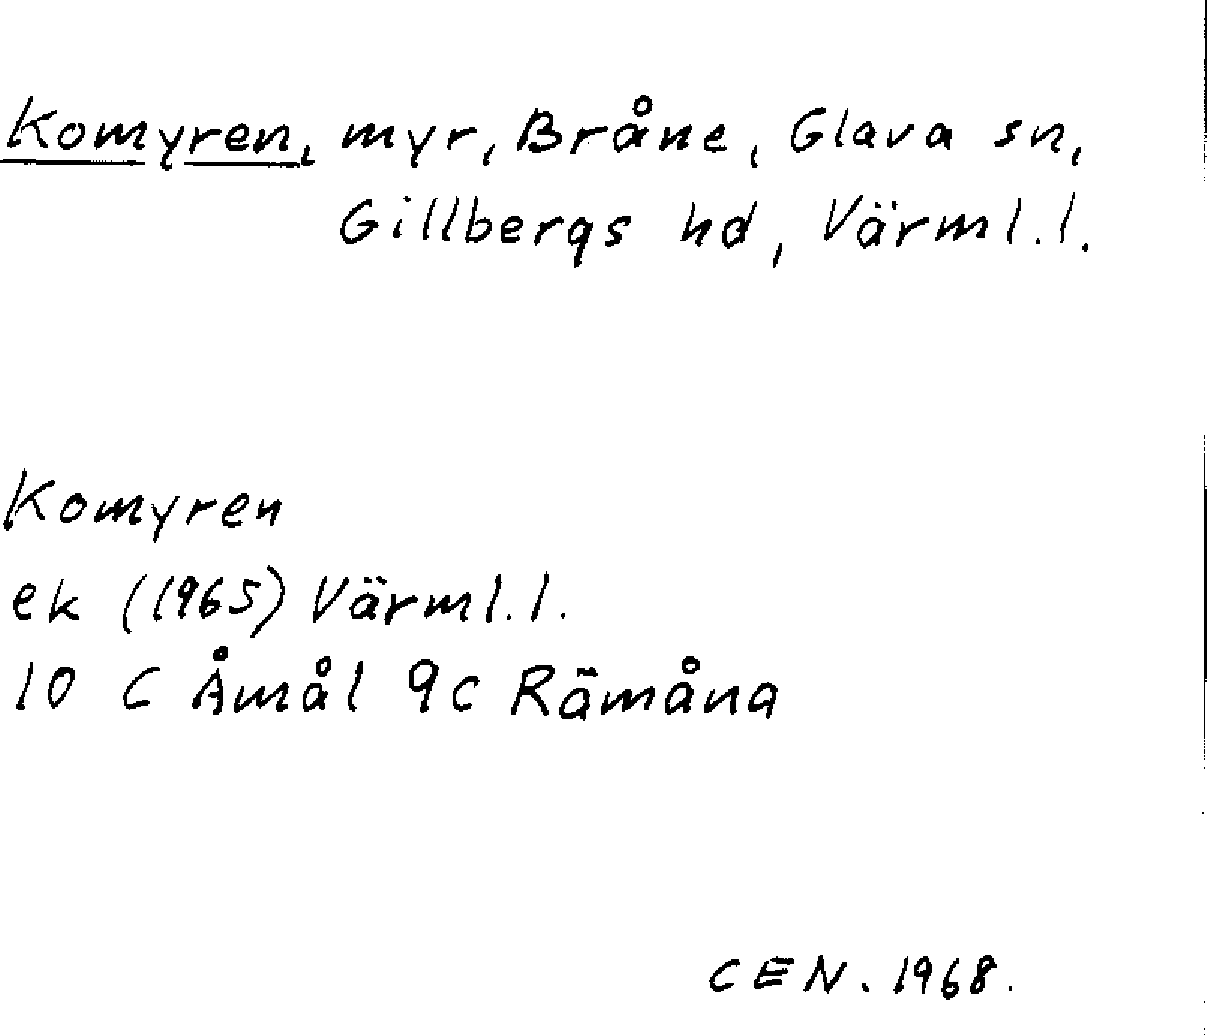 Komyren, myr, Bråne, Glava sn,
Gillbergs hd, Värml. l.
Komyren
ek (1965) Värml. l.
10 C Åmål 9c Rämåna
CEN. 1968.